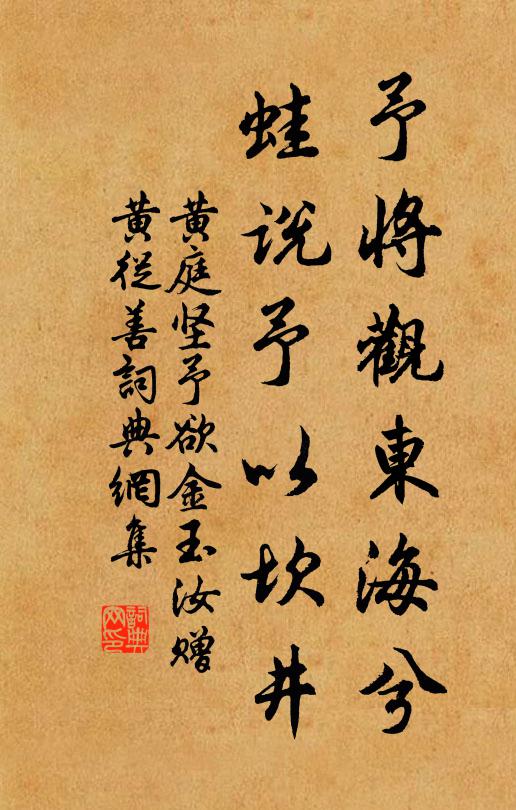 予將觀東海兮
蛙説予以坎井
黄庭坚予欲金玉汝赠
黄從善詞典網集
詞典網印